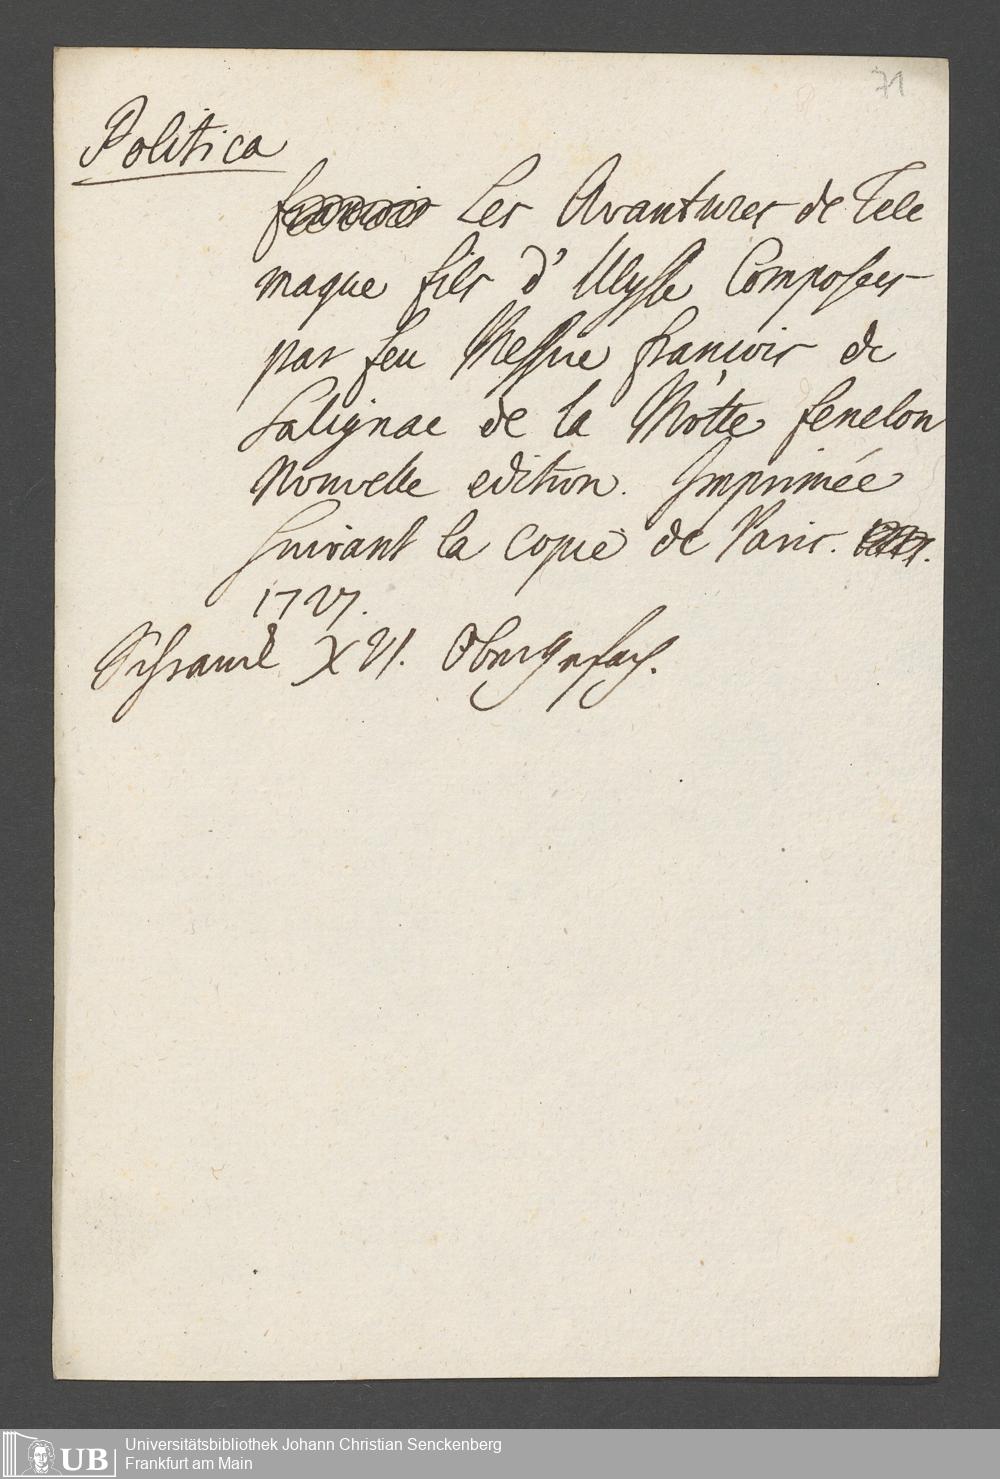 71
Politica
Les Avantures de Tele
maque fils d'Ulysse Composees
par feu Messire françois de
Salignac de la Motte fenelon
Nouvelle edition. Imprimée
suivant la copie de Paris.
1727.
XVI.
UB Universitätsbibliothek Johann Christian Senckenberg
Frankfurt am Main